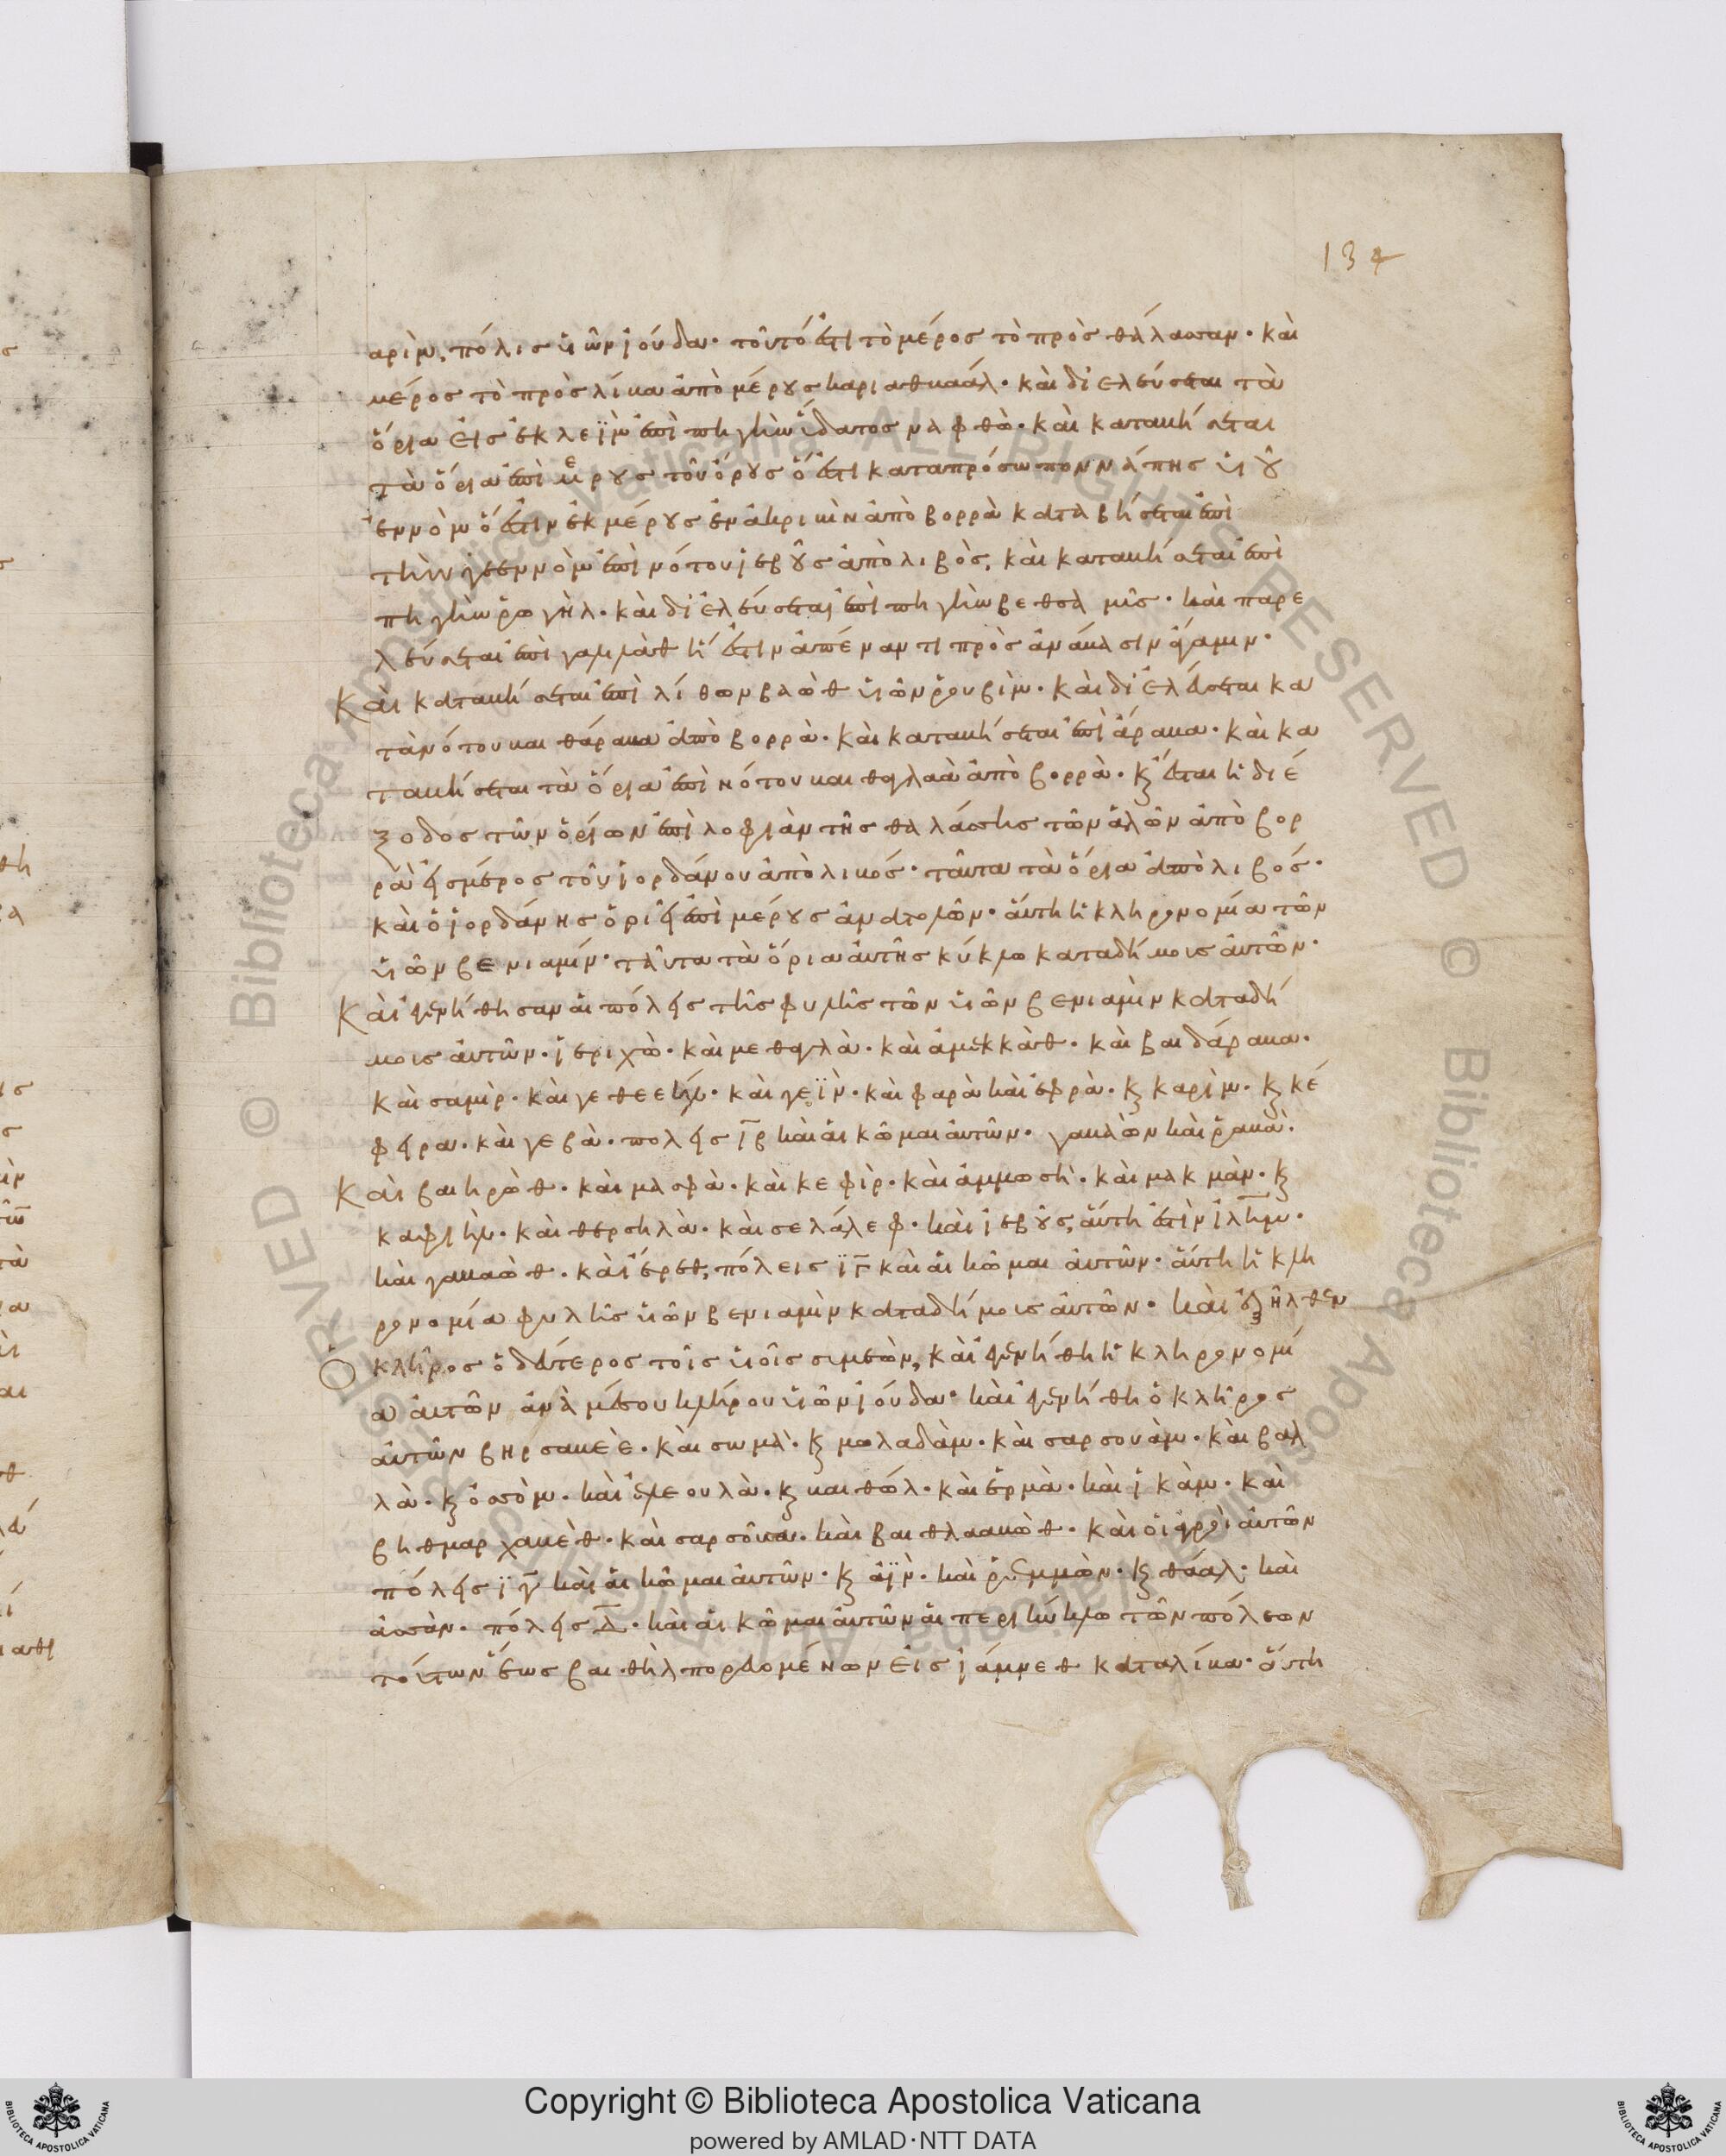 134
αρὶμ, πόλις ὑιῶν ἰούδα· τοῦτό ἐστι τὸ μέρος τὸ πρὸς θάλασσαν· καὶ
μέρος τὸ πρὸς λίβα ἀπὸ μέρους καριαθβαάλ· καὶ διελεύσεται τὰ
ὅρια εἰς ἐκλεϊμ ἐπὶ πηγὴν ὕδατος ναφθὼ· καὶ καταβήσεται
τὰ ὅρια ἐπὶ μέρους τοῦ ὄρους ὅ ἐστι καταπρόσωπον νάπης ὑιοῦ
ἐννὸμ ὅ ἐστιν ἐκ μέρους ἐμὰκριβὶν ἀπὸ βορρὰ καταβήσεται ἐπὶ
τὴν γεεννὸμ ἐπὶ νότον ἰεβοῦς ἀπὸ λιβὸς, καὶ καταβήσεται ἐπὶ
πηγὴν ῥωγὴλ· καὶ διελεύσεται ἐπὶ πηγὴν βεθσὰ μῖς· καὶ παρε
λεύσεται ἐπὶ γαλιλὼθ ἥ ἐστιν ἀπέναντι πρὸς ἀνάβασιν ἐθαμιν·
Καὶ καταβήσεται ἐπὶ λίθον βαὼθ ὑιῶν ῥουβὶμ· καὶ διελεύσεται κα
τὰ νότου βαιθάραβα ἀπὸ βορρὰ· καὶ καταβήσεται ἐπὶ ἄραβα· καὶ κα
ταβήσεται τὰ ὅρια ἐπὶ νότον βαιθαγλαὰ ἀπὸ βορρὰ· κ ἔσται ἡ διέ
ξοδος τῶν ὁρίων ἐπὶ λοφιὰν τῆς θαλάσσης τῶν ἁλῶν ἀπὸ βορ
ρὰ εἰς μέρος τοῦ ἰορδάνου ἀπὸ λιβός· ταῦτα τὰ ὅρια ἀπὸ λιβός·
καὶ ὁ ἰορδάνης ὁριεῖ ἐπὶ μέρους ἀνατολῶν· αὕτη ἡ κληρονομία τῶν
ὑιῶν βενιαμίν· ταῦτα τὰ ὅρια αὐτῆς κύκλω κατα δήμοις αὐτῶν·
Καὶ ἐγενήθησαν αἱ πόλεις τῆς φυλῆς τῶν ὑιῶν βενιαμὶν κατα δή
μοις αὐτῶν· ἱεριχὼ· καὶ μεθαγλὰ· καὶ ἀμεκκὰθ· καὶ βαιδάραβα·
καὶ σαμὶρ· καὶ γεθεεὴλ· καὶ γεϊν· καὶ φαρὰ καὶ ἐφρὰ· κ καρὶμ· κ κέ
φειρα· καὶ γεβὰ· πολεις ιβ καὶ αἱ κῶμαι αὐτῶν· γαβαὼν καὶ ῥαμὰ·
Καὶ βαιηρὼθ· καὶ μασφὰ· καὶ κεφὶρ· καὶ ἀμμωσὴ· καὶ μακμὰν· κ
καφιὴλ· καὶ θερσηλὰ· καὶ σελάλεφ· καὶ ἰεβοῦς, αὕτη ἐστὶν ἰλημ·
καὶ γαβαὼθ· καὶ ἔρεθ, πόλεις ιγ καὶ αἱ κῶμαι αὐτῶν· αὕτη ἡ κλη
ρονομία φυλῆς ὑιῶν βενιαμὶν κατα δήμοις αὐτῶν· καὶ ἐξῆλθεν
Ὁ κλῆρος ὁ δεύτερος τοῖς ὑιοῖς συμεὼν, καὶ ἐγενήθη ἡ κληρονομί
α αὐτῶν ἀνὰ μέσον κλήρου ὑιῶν ἰούδα· καὶ ἐγενήθη ὁ κλῆρος
αὐτῶν βηρσαβεὲ· καὶ σωμὰ· κ μωλαδὰμ· καὶ σαρσουὰμ· καὶ βαλ
λὰ· κ ὀασὸμ· καὶ ἐλεουλὰ· κ βαιθώλ· καὶ ἑρμὰ· καὶ ἰκὰμ· καὶ
βηθμαρχαβὲθ· καὶ σαρσοῦσα· καὶ βαιθλααβὼθ· καὶ οἱ ἀγροὶ αὐτῶν
πόλεις ιγ καὶ αἱ κῶμαι αὐτῶν· κ ἀϊν· καὶ ῥεμμὼν· κ θάαλ· καὶ
ἀσὰν· πόλεις δ· καὶ αἱ κῶμαι αὐτῶν αἱ περικύκλω τῶν πόλεων
τούτων ἕως βαιθὴλ πορευομένων εἰς ἰάμμεθ κατα λίβα· αὕτη